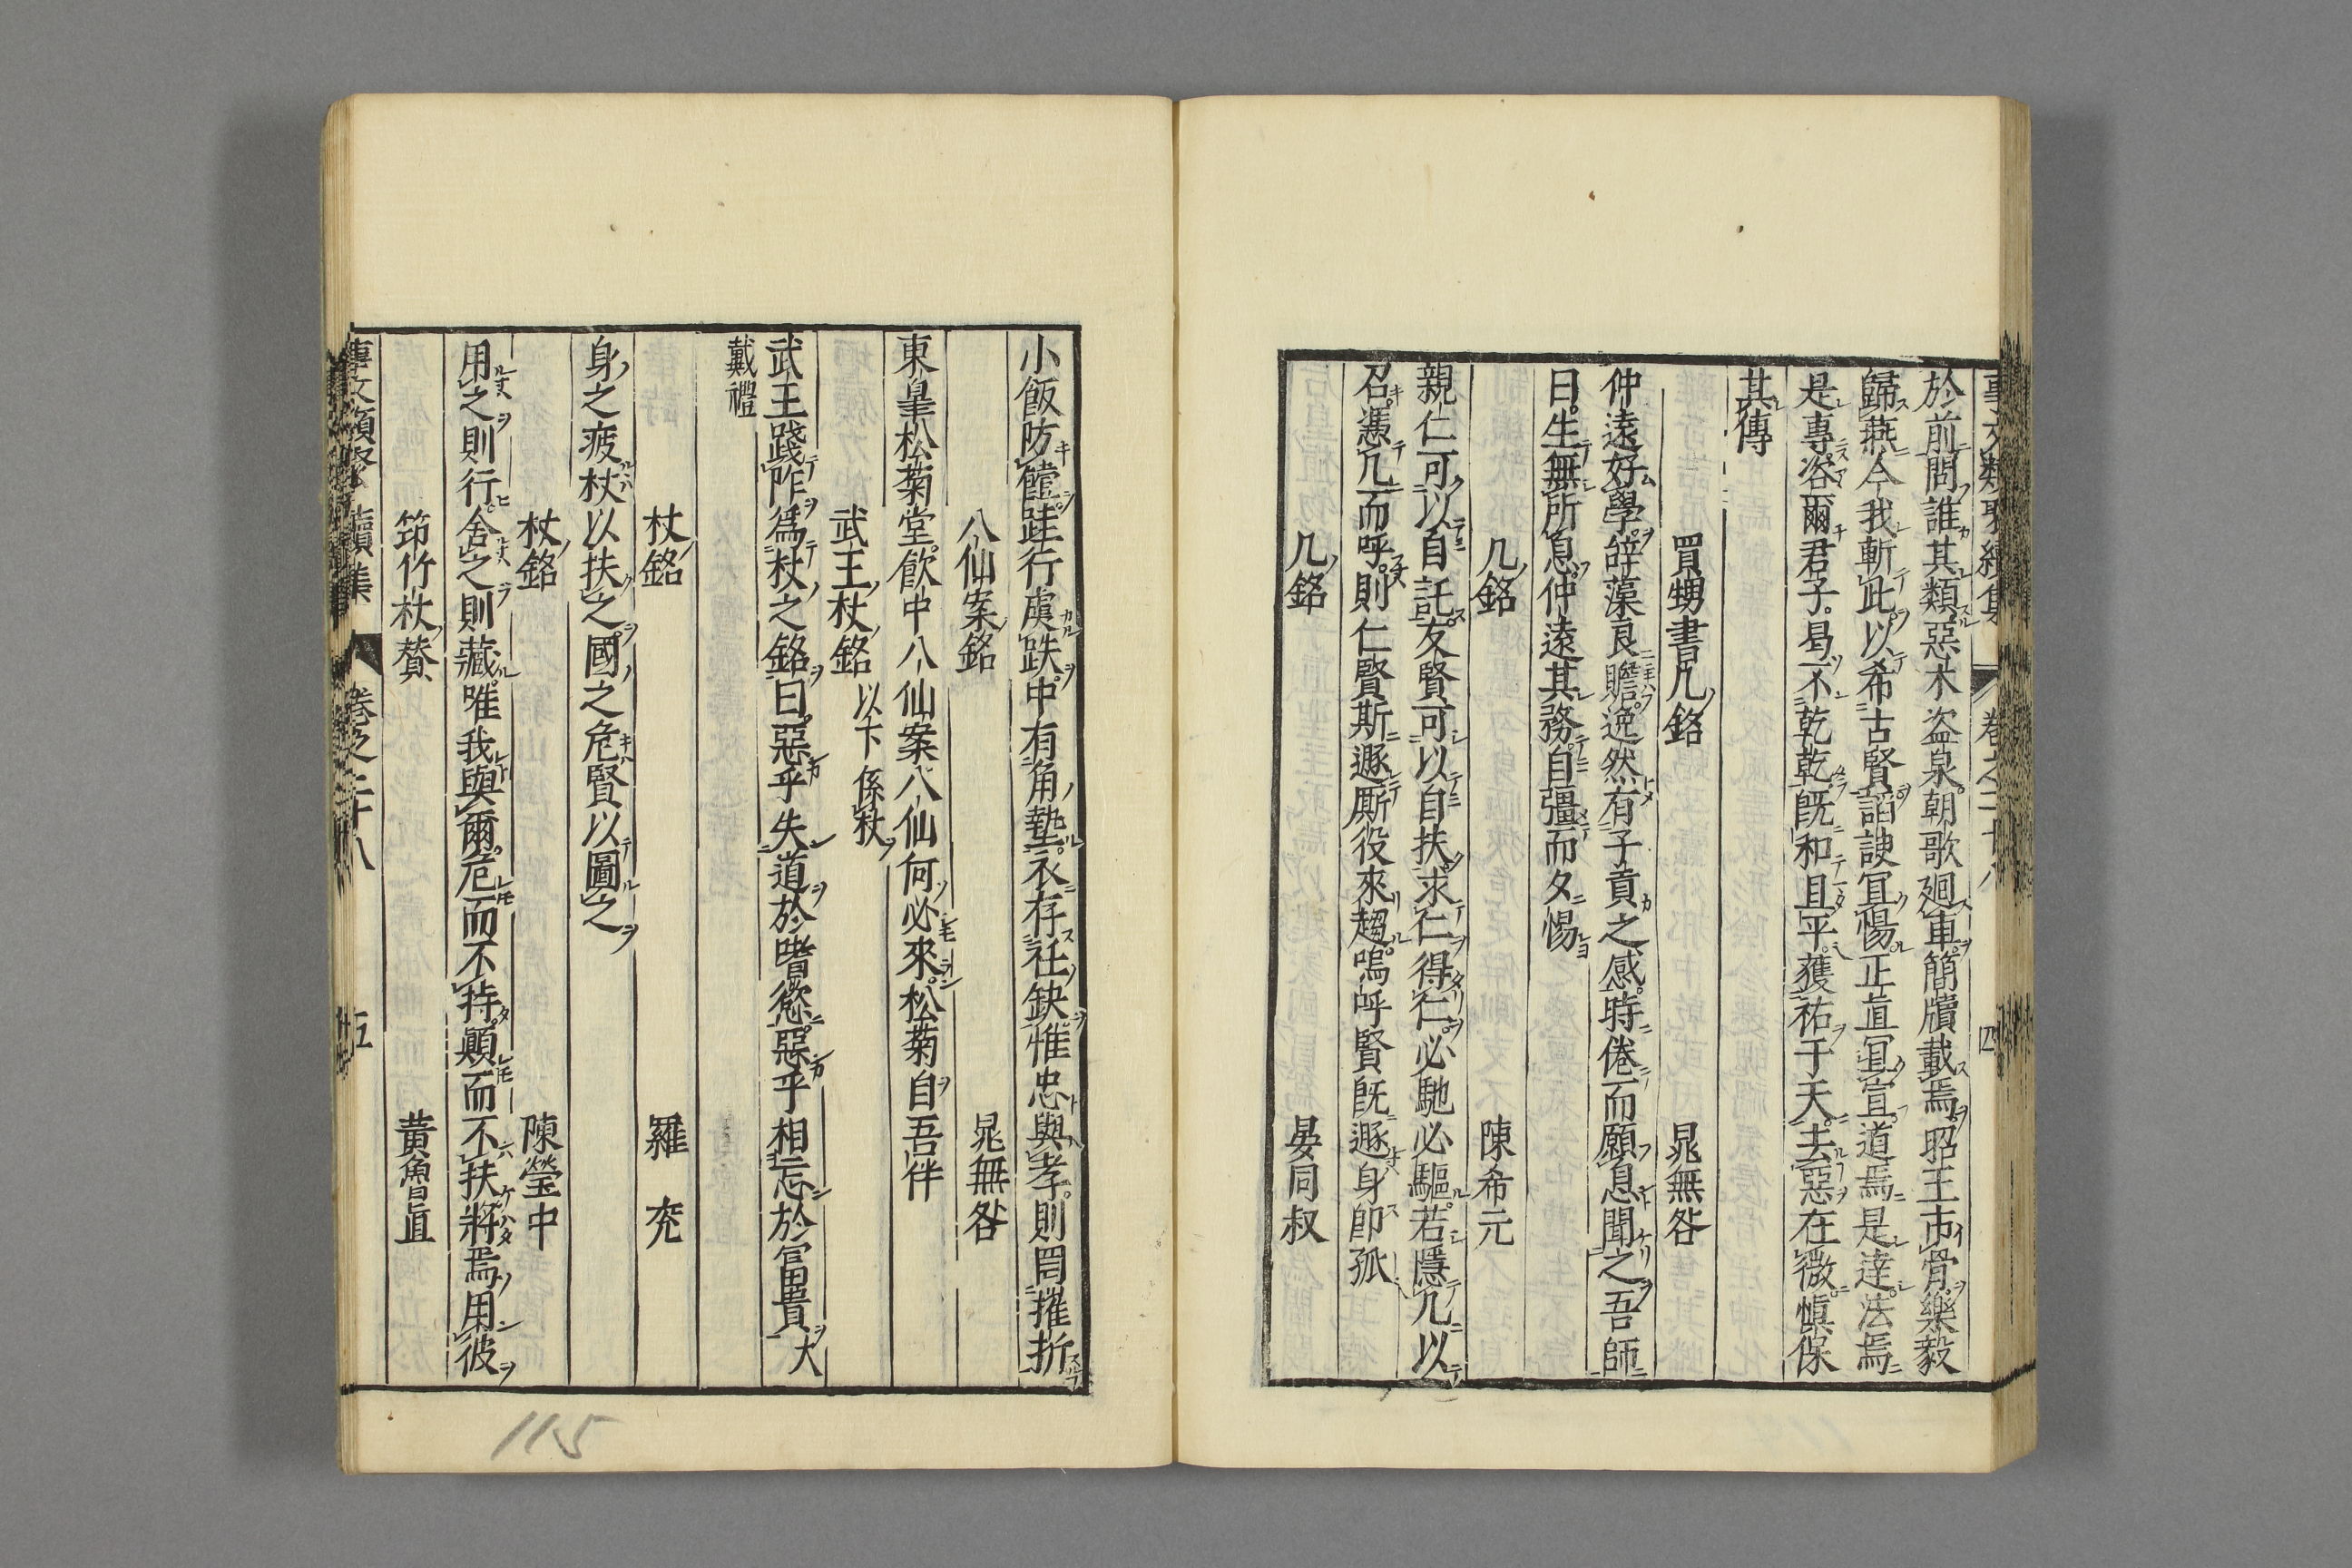 事文類聚續集 卷之二十八 四
於前問誰其類惡木盜泉朝歌廻車簡牘載焉昭王市骨樂毅
歸燕今我斬此以希古賢諂諛冝惕正直冝宣道焉是達法焉
是專咨爾君子曷不乾乾旣和且平獲祐于天去惡在微愼保
其傳
買甥書几銘 晁無咎
仲遠好學辝藻良贍逸然有子貢之感時倦而願息聞之吾師
曰生無所息仲遠其務自彊而夕惕
几銘 陳希元
親仁可以自託友賢可以自扶求仁得仁必馳必驅若隱几以
召憑几而呼則仁賢斯遯厮役來趨嗚呼賢旣遯身卽孤
几銘 晏同叔
小飯防饐跬行虞跌中有角墊衣存衽缺惟忠與孝則罔摧折
八仙案銘 晁無咎
東皐松菊堂飮中八仙案八仙何必來松菊自吾伴
武王杖銘 以下係杖
武王踐阼爲杖之銘曰惡乎失道於嗜慾惡乎相忘於富貴 大
戴禮
杖銘 羅充
身之疲杖以扶之國之危賢以圖之
杖銘 陳瑩中
用之則行舍之則藏唯我與爾危而不持顚而不扶將焉用彼
笻竹杖贊 黃魯直
事文類聚續集 卷之二十八 五
115